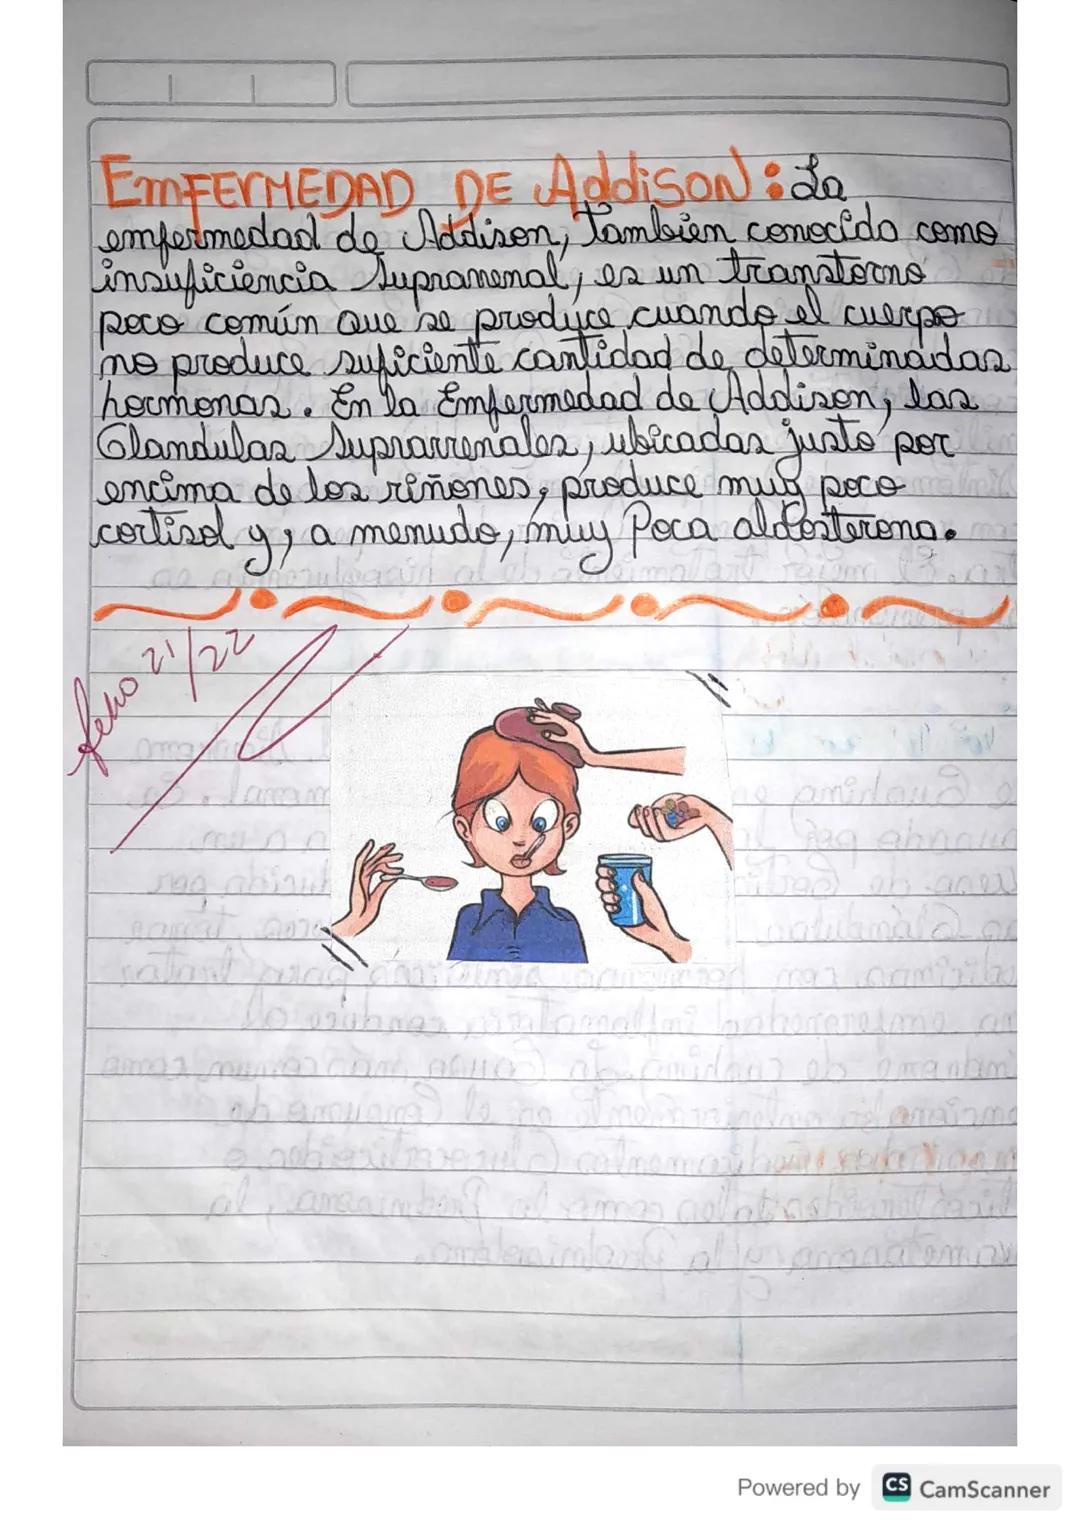 EnFERMEDAD DE AddiSON: La
enfermedad de Addison, también conocida como
insuficiencia Suprarrenal, es un transtorno
poco común que se produce cuando el cuerpo
no produce suficiente cantidad de determinadas
hormonas. En la Enfermedad de Addison, las
Glandulas Suprarrenales, ubicadas justo por
encima de los riñones, produce muy poco
cortisol y, a menudo, muy Poca aldosterona.
21/22
Powered by CS CamScanner